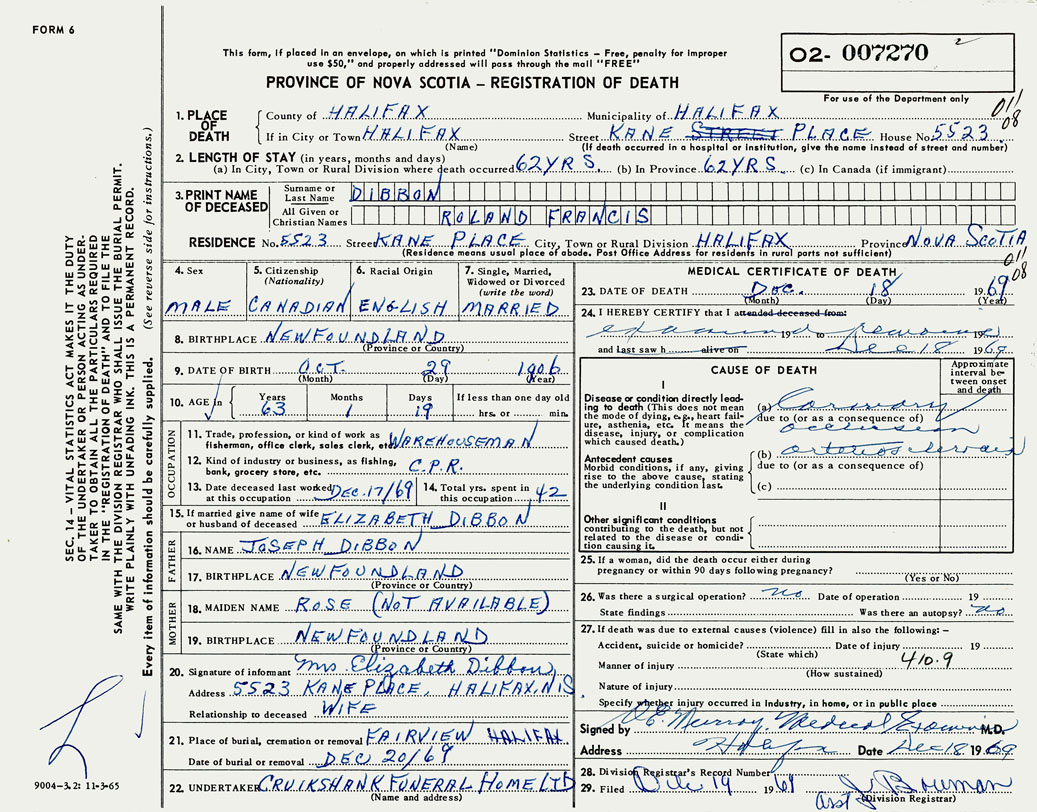 FORM 6
This form, if placed in an envelope, on which is printed "Dominion Statistics – Free, penalty for improper
use $50," and properly addressed will pass through the mail "FREE"
PROVINCE OF NOVA SCOTIA – REGISTRATION OF DEATH
02- 007270
For use of the Department only
011
08
1. PLACE OF DEATH
County of HALIFAX Municipality of HALIFAX
If in City or Town HALIFAX Street KANE STREET PLACE House No. 5523
(Name) (If death occurred in a hospital or institution, give the name instead of street and number)
2. LENGTH OF STAY (in years, months and days)
(a) In City, Town or Rural Division where death occurred 62 YRS. (b) In Province 62 YRS. (c) In Canada (if immigrant)
3. PRINT NAME OF DECEASED
Surname or Last Name DIBBON
All Given or Christian Names ROLAND FRANCIS
RESIDENCE No. 5523 Street KANE PLACE City, Town or Rural Division HALIFAX Province NOVA SCOTIA
(Residence means usual place of abode. Post Office Address for residents in rural parts not sufficient)
011
08
4. Sex MALE
5. Citizenship (Nationality) CANADIAN
6. Racial Origin ENGLISH
7. Single, Married, Widowed or Divorced (write the word) MARRIED
8. BIRTHPLACE NEWFOUNDLAND
(Province or Country)
9. DATE OF BIRTH OCT. 29 1906
(Month) (Day) (Year)
10. AGE in Years 63 Months 1 Days 19 If less than one day old hrs. or min.
OCCUPATION
11. Trade, profession, or kind of work as fisherman, office clerk, sales clerk, etc. WAREHOUSEMAN
12. Kind of industry or business, as fishing, bank, grocery store, etc. C.P.R.
13. Date deceased last worked at this occupation DEC. 17/69 14. Total yrs. spent in this occupation 42
15. If married give name of wife or husband of deceased ELIZABETH DIBBON
FATHER
16. NAME JOSEPH DIBBON
17. BIRTHPLACE NEWFOUNDLAND
(Province or Country)
MOTHER
18. MAIDEN NAME ROSE (NOT AVAILABLE)
19. BIRTHPLACE NEWFOUNDLAND
(Province or Country)
20. Signature of informant Mrs Elizabeth Dibbon
Address 5523 KANE PLACE, HALIFAX, N.S
Relationship to deceased WIFE
21. Place of burial, cremation or removal FAIRVIEW HALIFAX
Date of burial or removal DEC 20/69
22. UNDERTAKER CRUIKSHANK FUNERAL HOME LTD
(Name and address)
MEDICAL CERTIFICATE OF DEATH
23. DATE OF DEATH DEC. 18 1969
(Month) (Day) (Year)
24. I HEREBY CERTIFY that I attended deceased from:
examined 19 to 19
and last saw h alive on Dec 18 1969
CAUSE OF DEATH
Approximate interval between onset and death
I
Disease or condition directly leading to death (This does not mean the mode of dying, e.g., heart failure, asthenia, etc. It means the disease, injury, or complication which caused death.)
(a) Coronary
due to (or as a consequence of)
occlusion
Antecedent causes
Morbid conditions, if any, giving rise to the above cause, stating the underlying condition last.
(b)
due to (or as a consequence of)
(c)
II
Other significant conditions
contributing to the death, but not related to the disease or condition causing it.
25. If a woman, did the death occur either during
pregnancy or within 90 days following pregnancy?
(Yes or No)
26. Was there a surgical operation? no Date of operation 19
State findings Was there an autopsy? no
27. If death was due to external causes (violence) fill in also the following: –
Accident, suicide or homicide? Date of injury 19
(State which)
Manner of injury 410.9
(How sustained)
Nature of injury
Specify whether injury occurred in Industry, in home, or in public place
Signed by Murray, Medical Examiner M.D.
Address Halifax Date Dec 18 1969
28. Division Registrar's Record Number
29. Filed Dec 19 1969 J Bowman
asst (Division Registrar)
SEC. 14 – VITAL STATISTICS ACT MAKES IT THE DUTY
OF THE UNDERTAKER OR PERSON ACTING AS UNDER-
TAKER TO OBTAIN ALL THE PARTICULARS REQUIRED
IN THE "REGISTRATION OF DEATH" AND TO FILE THE
SAME WITH THE DIVISION REGISTRAR WHO SHALL ISSUE THE BURIAL PERMIT.
WRITE PLAINLY WITH UNFADING INK. THIS IS A PERMANENT RECORD.
Every item of information should be carefully supplied. (See reverse side for instructions.)
9004-3.2: 11-3-65